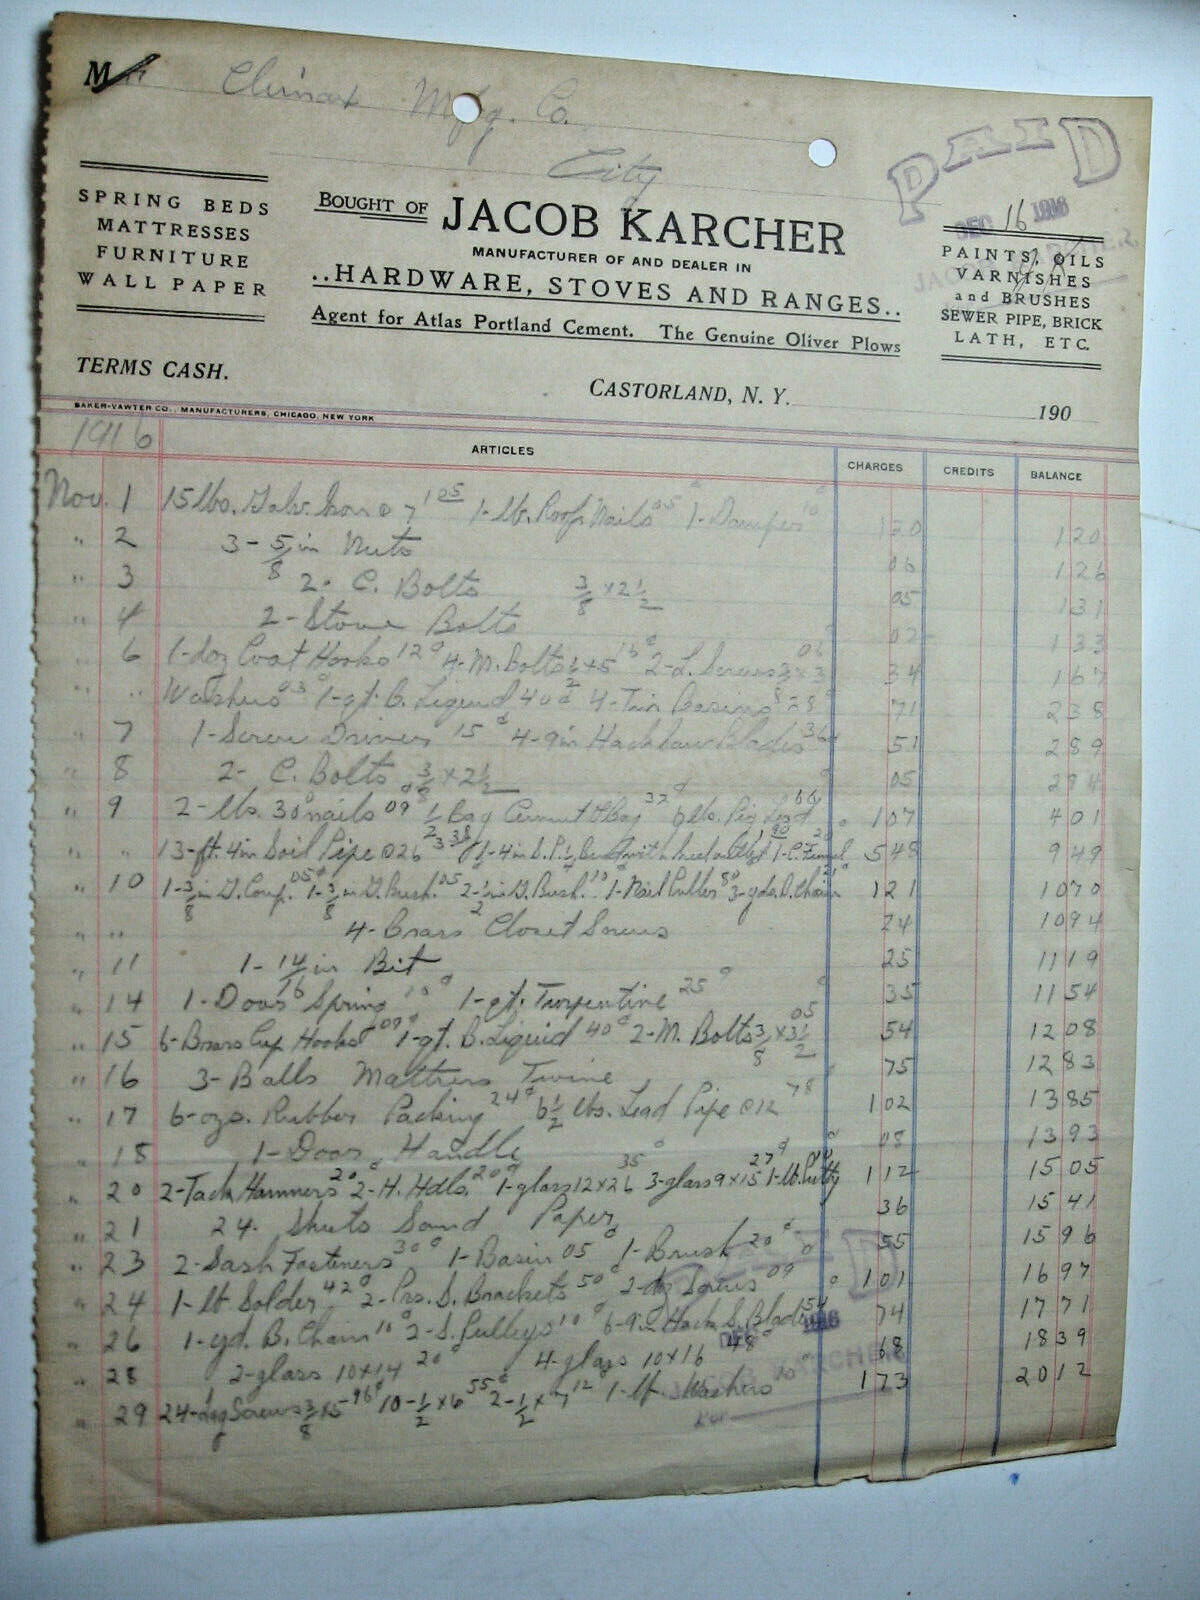 M Climax Mfg. Co.
City
PAID
DEC 16 1916
SPRING BEDS
MATTRESSES
FURNITURE
WALL PAPER
BOUGHT OF JACOB KARCHER
MANUFACTURER OF AND DEALER IN
..HARDWARE, STOVES AND RANGES..
Agent for Atlas Portland Cement. The Genuine Oliver Plows
PAINTS, OILS
VARNISHES
and BRUSHES
SEWER PIPE, BRICK
LATH, ETC.
TERMS CASH.
CASTORLAND, N. Y. 190
BAKER-VAWTER CO., MANUFACTURERS, CHICAGO, NEW YORK
1916 ARTICLES CHARGES CREDITS BALANCE
Nov. 1 15 lbs. Galv. Iron @ 7 1 05 1-lb. Roof Nails 05 1-Damper 10 120 120
" 2 3-5/8 in Nuts 06 126
" 3 2-C. Bolts 3/8 x 2 1/2 05 131
" 4 2-Stove Bolts 02 133
" 6 1-doz Coat Hooks 12 4-M. Bolts 1/2 x 5 16 2-L. Screws 3 x 3 06 34 167
" " Washers 03 1-qt. B. Liquid 40 4-Tin Basins 71 238
" 7 1-Screw Driver 15 4-9 in Hack Saw Blades 36 51 289
" 8 2-C. Bolts 3/8 x 2 1/2 05 294
" 9 2-lbs. 30 nails 09 1/2 Bag Cement & Bag 32 6 lbs. Pig Lead 66 107 401
" " 13-ft. 4 in Soil Pipe @ 26 3 38 548 949
" 10 1-3/8 in G. Coup. 05 1-3/8 in G. Bush. 05 2-1/2 in G. Bush. 10 1-Nail Puller 80 3-yds. D. Chain 21 121 1070
" " 4-Brass Closet Screws 24 1094
" 11 1-14/16 in Bit 25 1119
" 14 1-Door Spring 10 1-qt. Turpentine 25 35 1154
" 15 6-Brass Cup Hooks 09 1-qt. B. Liquid 40 2-M. Bolts 3/8 x 3 1/2 05 54 1208
" 16 3-Balls Mattress Twine 75 1283
" 17 6-ozs. Rubber Packing 24 6 1/2 lbs. Lead Pipe @ 12 78 102 1385
" 18 1-Door Handle 08 1393
" 20 2-Tack Hammers 20 2-H. Hdls. 20 1-glass 12x26 35 3-glass 9x15 27 1-lb. Putty 10 112 1505
" 21 24-Sheets Sand Paper 36 1541
" 23 2-Sash Fasteners 30 1-Basin 05 1-Brush 20 55 1596
" 24 1-lb Solder 42 2-Prs. S. Brackets 50 2-doz Screws 09 101 1697
" 26 1-yd. B. Chain 10 2-S. Pulleys 10 6-9 in Hack S. Blades 54 74 1771
" 28 2-glass 10x14 20 4-glass 10x16 48 68 1839
" 29 24-Lag Screws 3/8 x 5 96 10-1/2 x 6 55 2-1/2 x 7 12 1-lb. Washers 10 173 2012
PAID
DEC 1916
JACOB KARCHER
Per